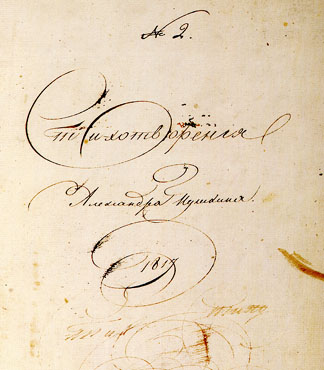 № 2.
Стихотворения
Александра Пушкина.
1817